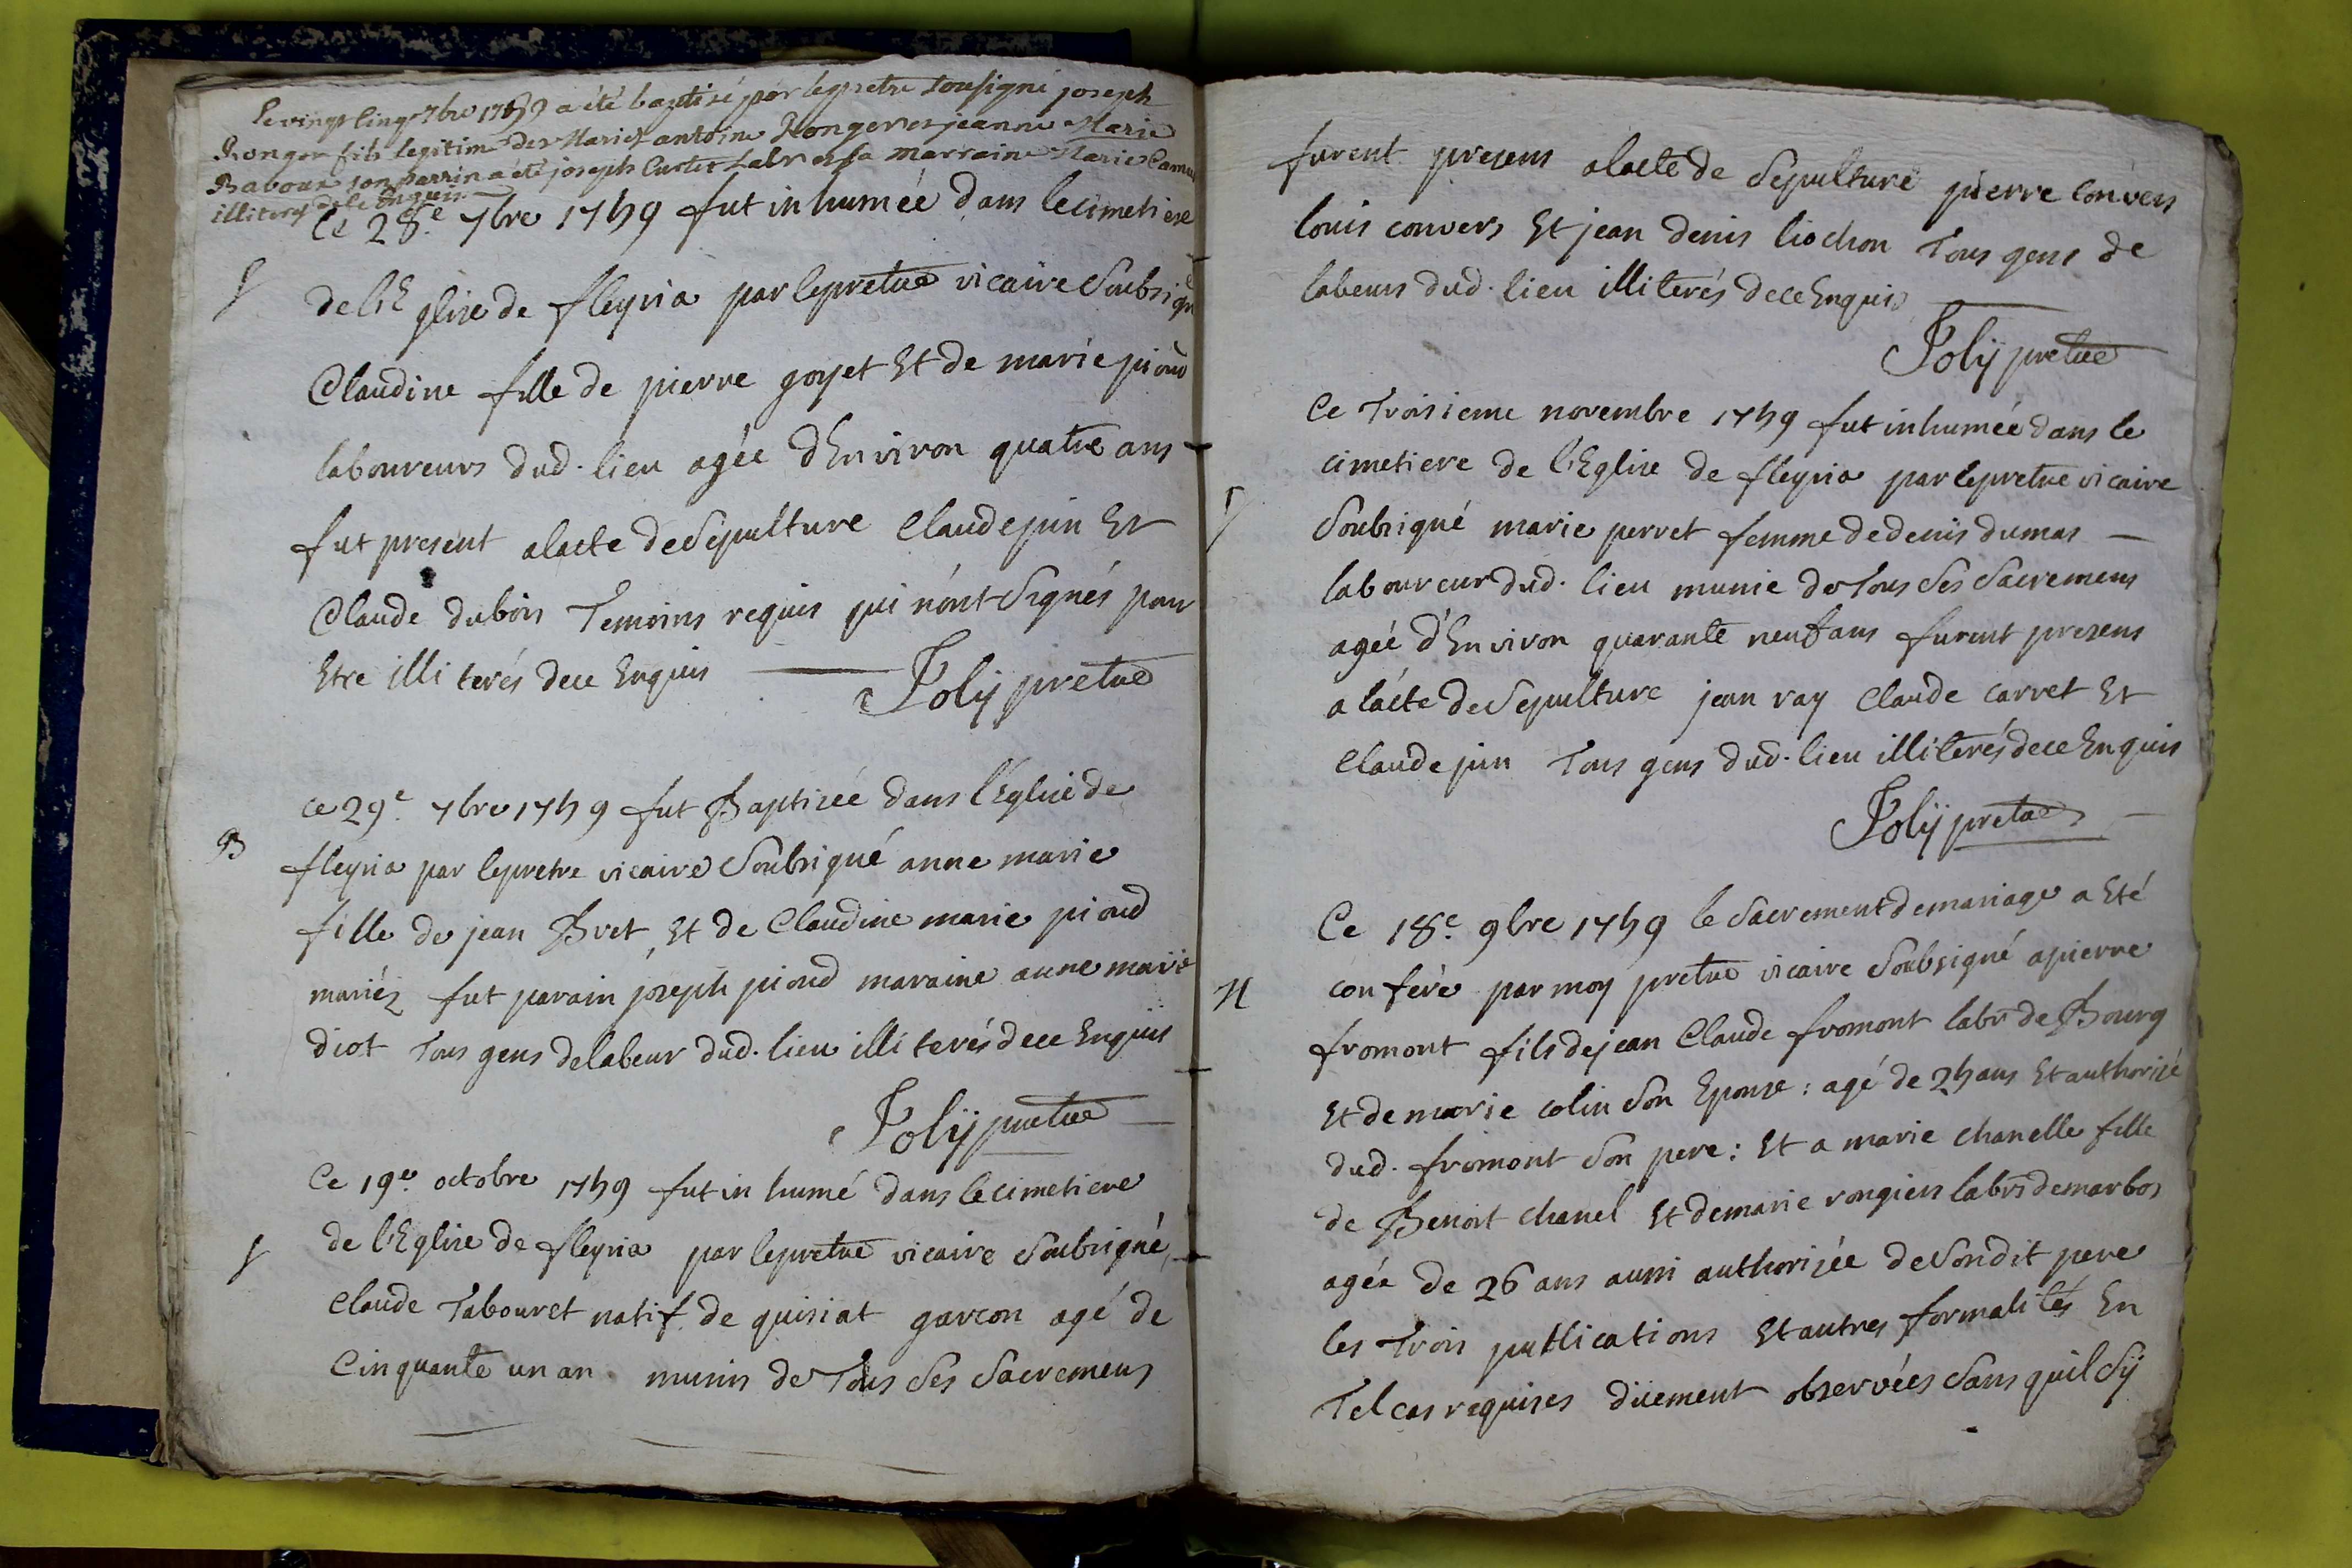 Le vingt cinq 7bre 1759 a été baptisé par le pretre sousigné joseph
Ronger fils legitime des Mariés antoine Ronger et jeanne Marie
Baboux son parrin a été joseph Curtet Labr et sa marraine Marie Camu
illiterés de ce Enquis
Ce 28.e 7bre 1759 fut inhumée dans le cimetiere
S
de l'Eglise de fleyria par le pretre vicaire Soubsigné
Claudine fille de pierre goyet Et de marie pioud
laboureurs dud. lieu agée d'Environ quatre ans
fut present a lacte de Sepulture Claude pin Et
Claude dubois Temoins requis qui n'ont Signés pour
Etre illiterés de ce Enquis
Polij pretre
ce 29.e 7bre 1759 fut Baptisée dans l'Eglise de
B
fleyria par le pretre vicaire Soubsigné anne marie
fille de jean Bret, Et de Claudine marie pioud
mariéz fut parain joseph pioud maraine anne marie
diot Tous gens de labeur dud. lieu illiterés de ce Enquis
Polij pretre
Ce 19.e octobre 1759 fut inhumé dans le cimetiere
S
de l'Eglise de fleyria par le pretre vicaire Soubsigné,
Claude Tabouret natif de quisiat garcon agé de
Cinquante un an munis de Tous Ses Sacremens
furent presens a lacte de Sepulture pierre convers
louis convers Et jean denis liochon Tous gens de
labeurs dud. lieu illiterés de ce Enquis
Polij pretre
Ce Troisieme novembre 1759 fut inhumée dans le
cimetiere de l'Eglise de fleyria par le pretre vicaire
S
Soubsigné marie perret femme de denis dumas
laboureur dud. lieu munie de Tous Ses Sacremens
agée d'Environ quarante neuf ans furent presens
a lácte de Sepulture jean ray Claude carret Et
Claude pin Tous gens dud. lieu illiterés de ce Enquis
Polij pretre
Ce 18.e 9bre 1759 le Sacrement de mariage a Eté
M
conféré par moy pretre vicaire Soubsigné a pierre
fromont fils de jean Claude fromont labr de Bourg
Et de marie colin Son Epouse : agé de 25 ans Et authorisé
dud. fromont Son pere : Et a marie chanelle fille
de Benoit chanel Et de marie rongiers labrs de marbos
agée de 26 ans aussi authorisée de Son dit pere
les Trois publications Et autres formalités En
Tel cas requises düement observées Sans quil Sij